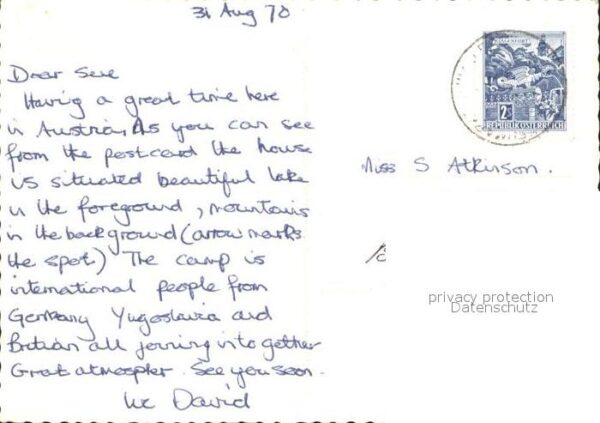 31 Aug 70
Dear Sue
Having a great time here
in Austria, As you can see
from the postcard the house
is situated beautiful lake
in the foreground, mountains
in the background (arrow marks
the spot) The camp is
international people from
Germany Yugoslavia and
Britian all joining in together
Great atmospher. See you soon.
David
Miss S Atkinson.
KLAGENFURT
2S
REPUBLIK ÖSTERREICH
privacy protection
Datenschutz